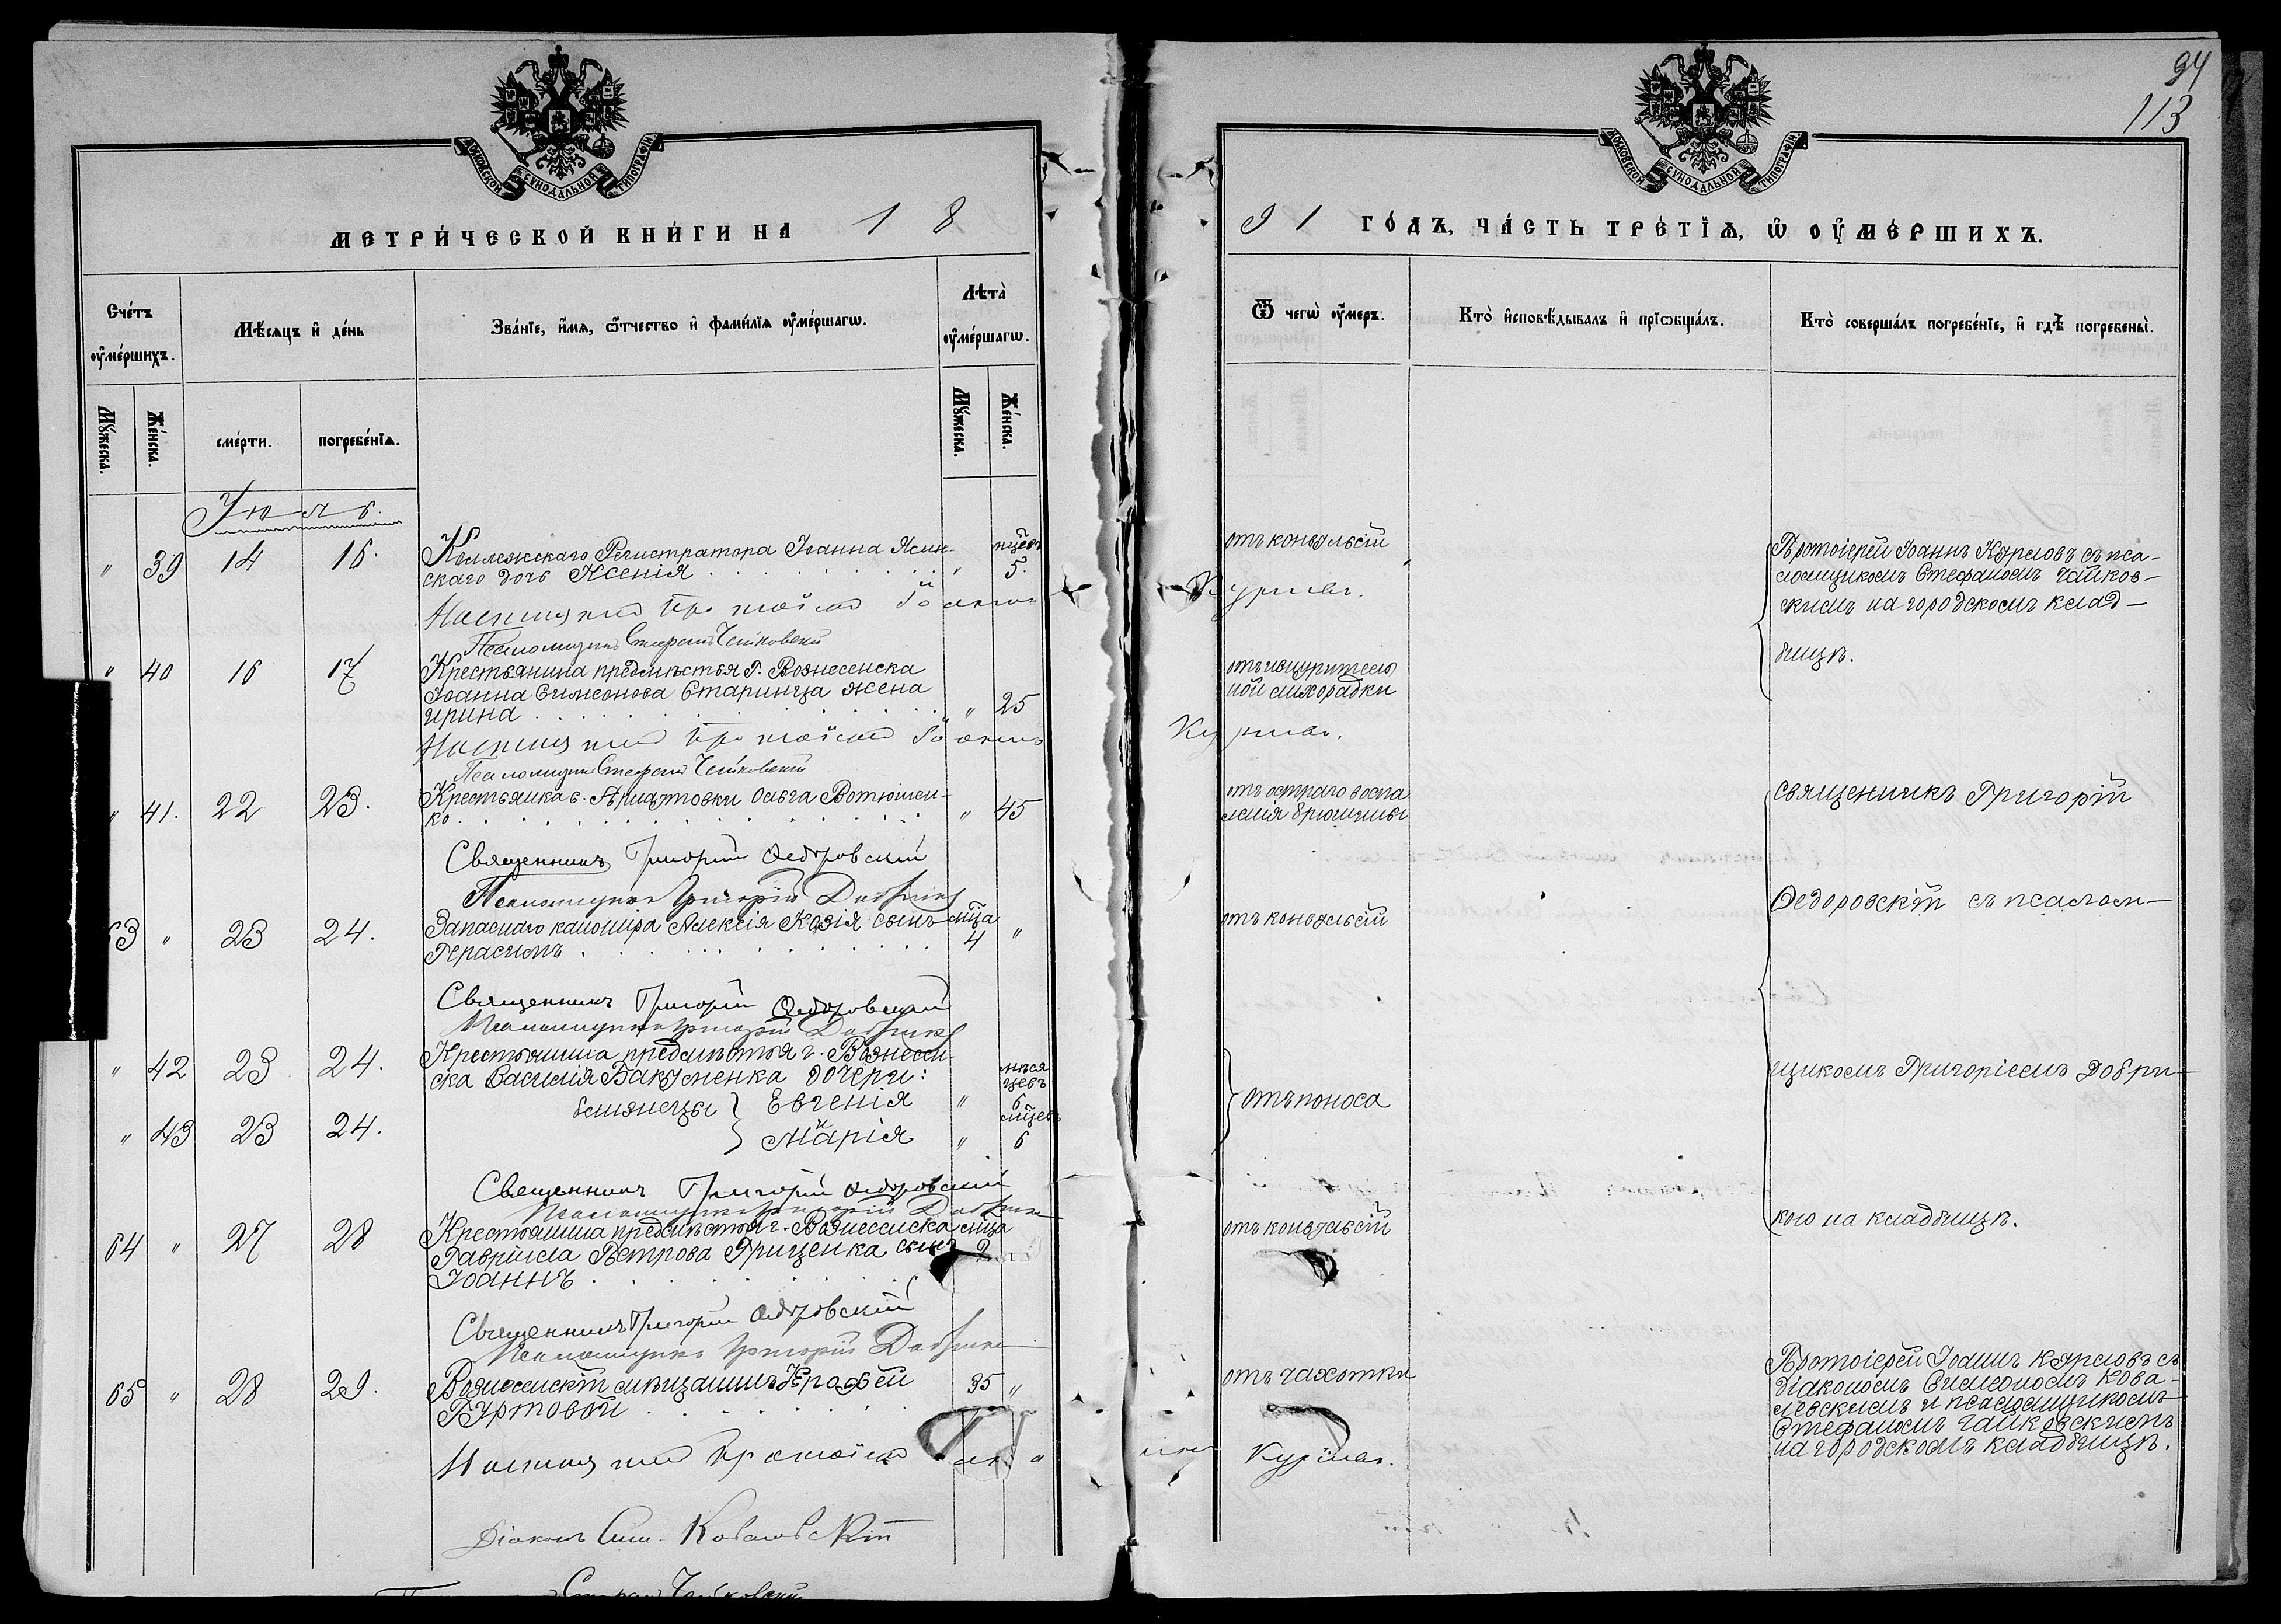 94
113
МОСКОВСКОЙ СѴНОДАЛЬНОЙ ТИПОГРАФІИ
МОСКОВСКОЙ СѴНОДАЛЬНОЙ ТИПОГРАФІИ
МЕТРИ́ЧЕСКОЙ КНИ́ГИ НА 18
91 ГО́ДЪ, ЧА́СТЬ ТРЕ́ТІѦ, Ѡ ОУМЕ́РШИХЪ.
Сче́тъ оуме́ршихъ.
Мꙋжеска.
Же́нска.
Мѣ́сѧцъ и де́нь
сме́рти.
погребе́нїѧ.
Зва́нїе, и́мѧ, ѻ́тчество и фами́лїѧ оуме́ршагѡ.
Лѣта̀ оуме́ршагѡ.
Мꙋжеска.
Же́нска.
Ѿ чегѡ̀ оу́меръ.
Кто̀ исповѣ́дывалъ и прїѡбща́лъ.
Кто̀ соверша́лъ погребе́нїе, и гдѣ̀ погребены̀.
Іюль.
" 39 14 16. Коллежскаго Регистратора Іоанна Ясин-
скаго дочь Ксенія " мцевъ 5.
отъ конвульсій
Протоіерей Іоаннъ Курловъ съ пса-
ломщикомъ Стефаномъ Чайков-
скимъ на городскомъ клад-
бищѣ.
Протоіерей Іоаннъ Курловъ.
Псаломщикъ Стефанъ Чайковскій
" 40 16 17 Крестьянина предмѣстья г. Вознесенска
Іоанна Симеонова Старинца жена
Ирина " 25
отъ изнуритель
ной лихорадки
Протоіерей Іоаннъ Курловъ.
Псаломщикъ Стефанъ Чайковскій
" 41. 22 23. Крестьянка с. Ольга Вотюшен-
ко " 45
отъ остраго воспа
ленія брюшины
священникъ Григорій
Священникъ Григорій Ѳедоровскій
Псаломщикъ Григорій
Ѳедоровскій съ псалом-
63 " 23 24. Запаснаго канонира Алексія Козія сынъ
Герасимъ мца 4 "
отъ конвульсій
Священникъ Григорій Ѳедоровскій
Псаломщикъ Григорій
" 42 23 24. Крестьянина предмѣстья г. Вознесен-
ска Василія Бакуменка дочери:
близнецы } Евгенія " мѣся
цевъ 6
" 43 23 24. и Марія " мцев 6
отъ поноса
щикомъ Григоріемъ Добри-
Священникъ Григорій Ѳедоровскій
Псаломщикъ Григорій
64 " 27 28 Крестьянина предмѣстья г. Вознесенска
Гавріила Петрова Грищенка сынъ
Іоаннъ мца 2
отъ конвульсій
кою на кладбищѣ.
Священникъ Григорій Ѳедоровскій
Псаломщикъ Григорій
65 " 28 29. Вознесенскій мѣщанинъ
Буртовой 35 "
отъ чахотки
Протоіерей Іоаннъ Курловъ съ
діакономъ Симеономъ Кова-
левскимъ и псаломщикомъ
Стефаномъ Чайковскимъ
на городскомъ кладбищѣ.
Протоіерей Курловъ.
Діаконъ Сим. Ковалевскій
Стефанъ Чайковскій